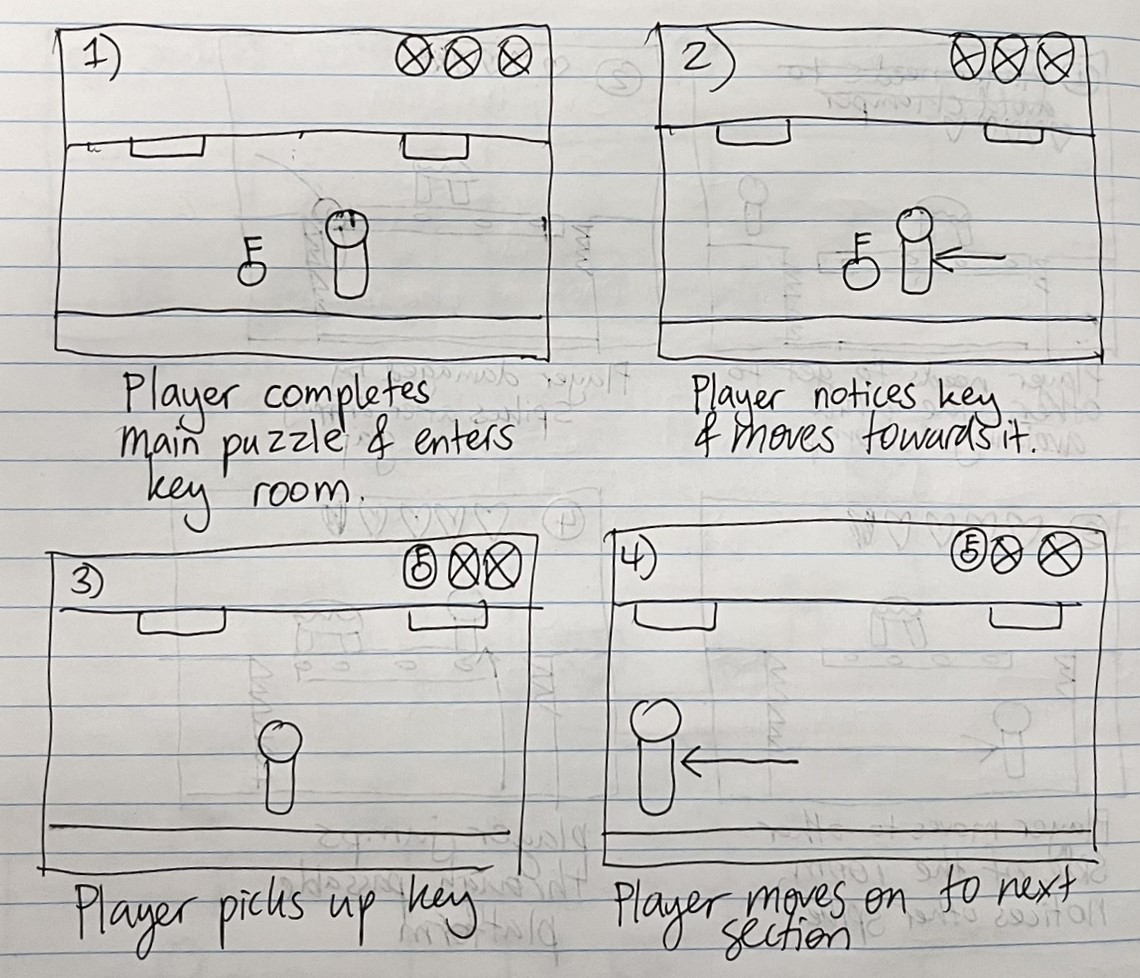 1)
2)
Player completes
main puzzle & enters
key room.
Player notices key
& moves towards it.
3)
4)
Player picks up key
Player moves on to next
section